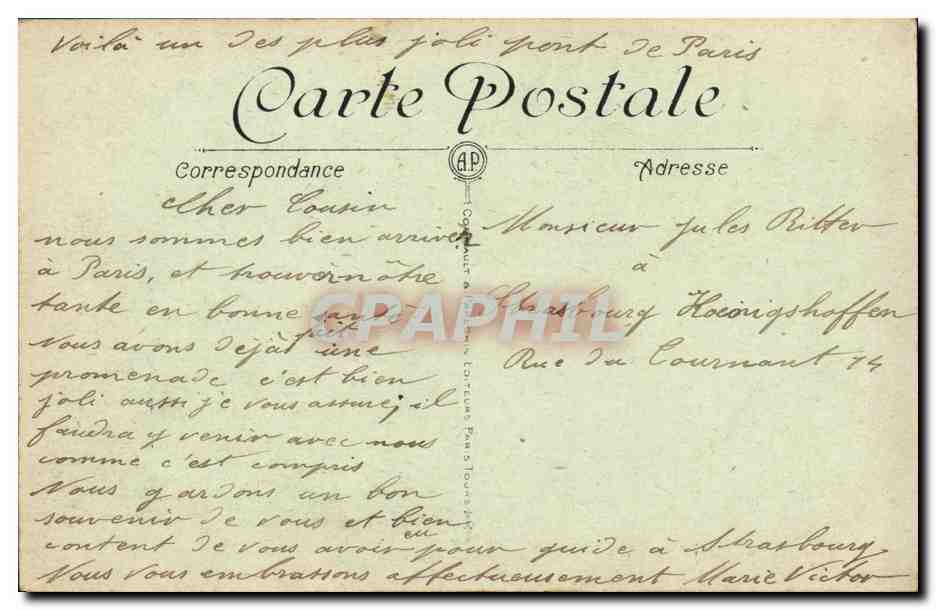 Voilà un des plus joli pont de Paris
Carte Postale
A.P.
Correspondance
Adresse
Cher Cousin
nous sommes bien arriver
à Paris, et trouver nôtre
tante en bonne santé
Nous avons dejà fait une
promenade c'est bien
joli aussi je vous assure; il
faudra y venir avec nous
comme c'est compris
Nous gardons un bon
souvenir de vous et bien
content de vous avoir eu pour guide à Strasbourg
Nous vous embrassons affectueusement Marie Victor
Monsieur Jules Ritter
à
Strasbourg Hoenigshoffen
Rue du Tournant 74
EDITEURS PARIS TOURS
CPAPHIL